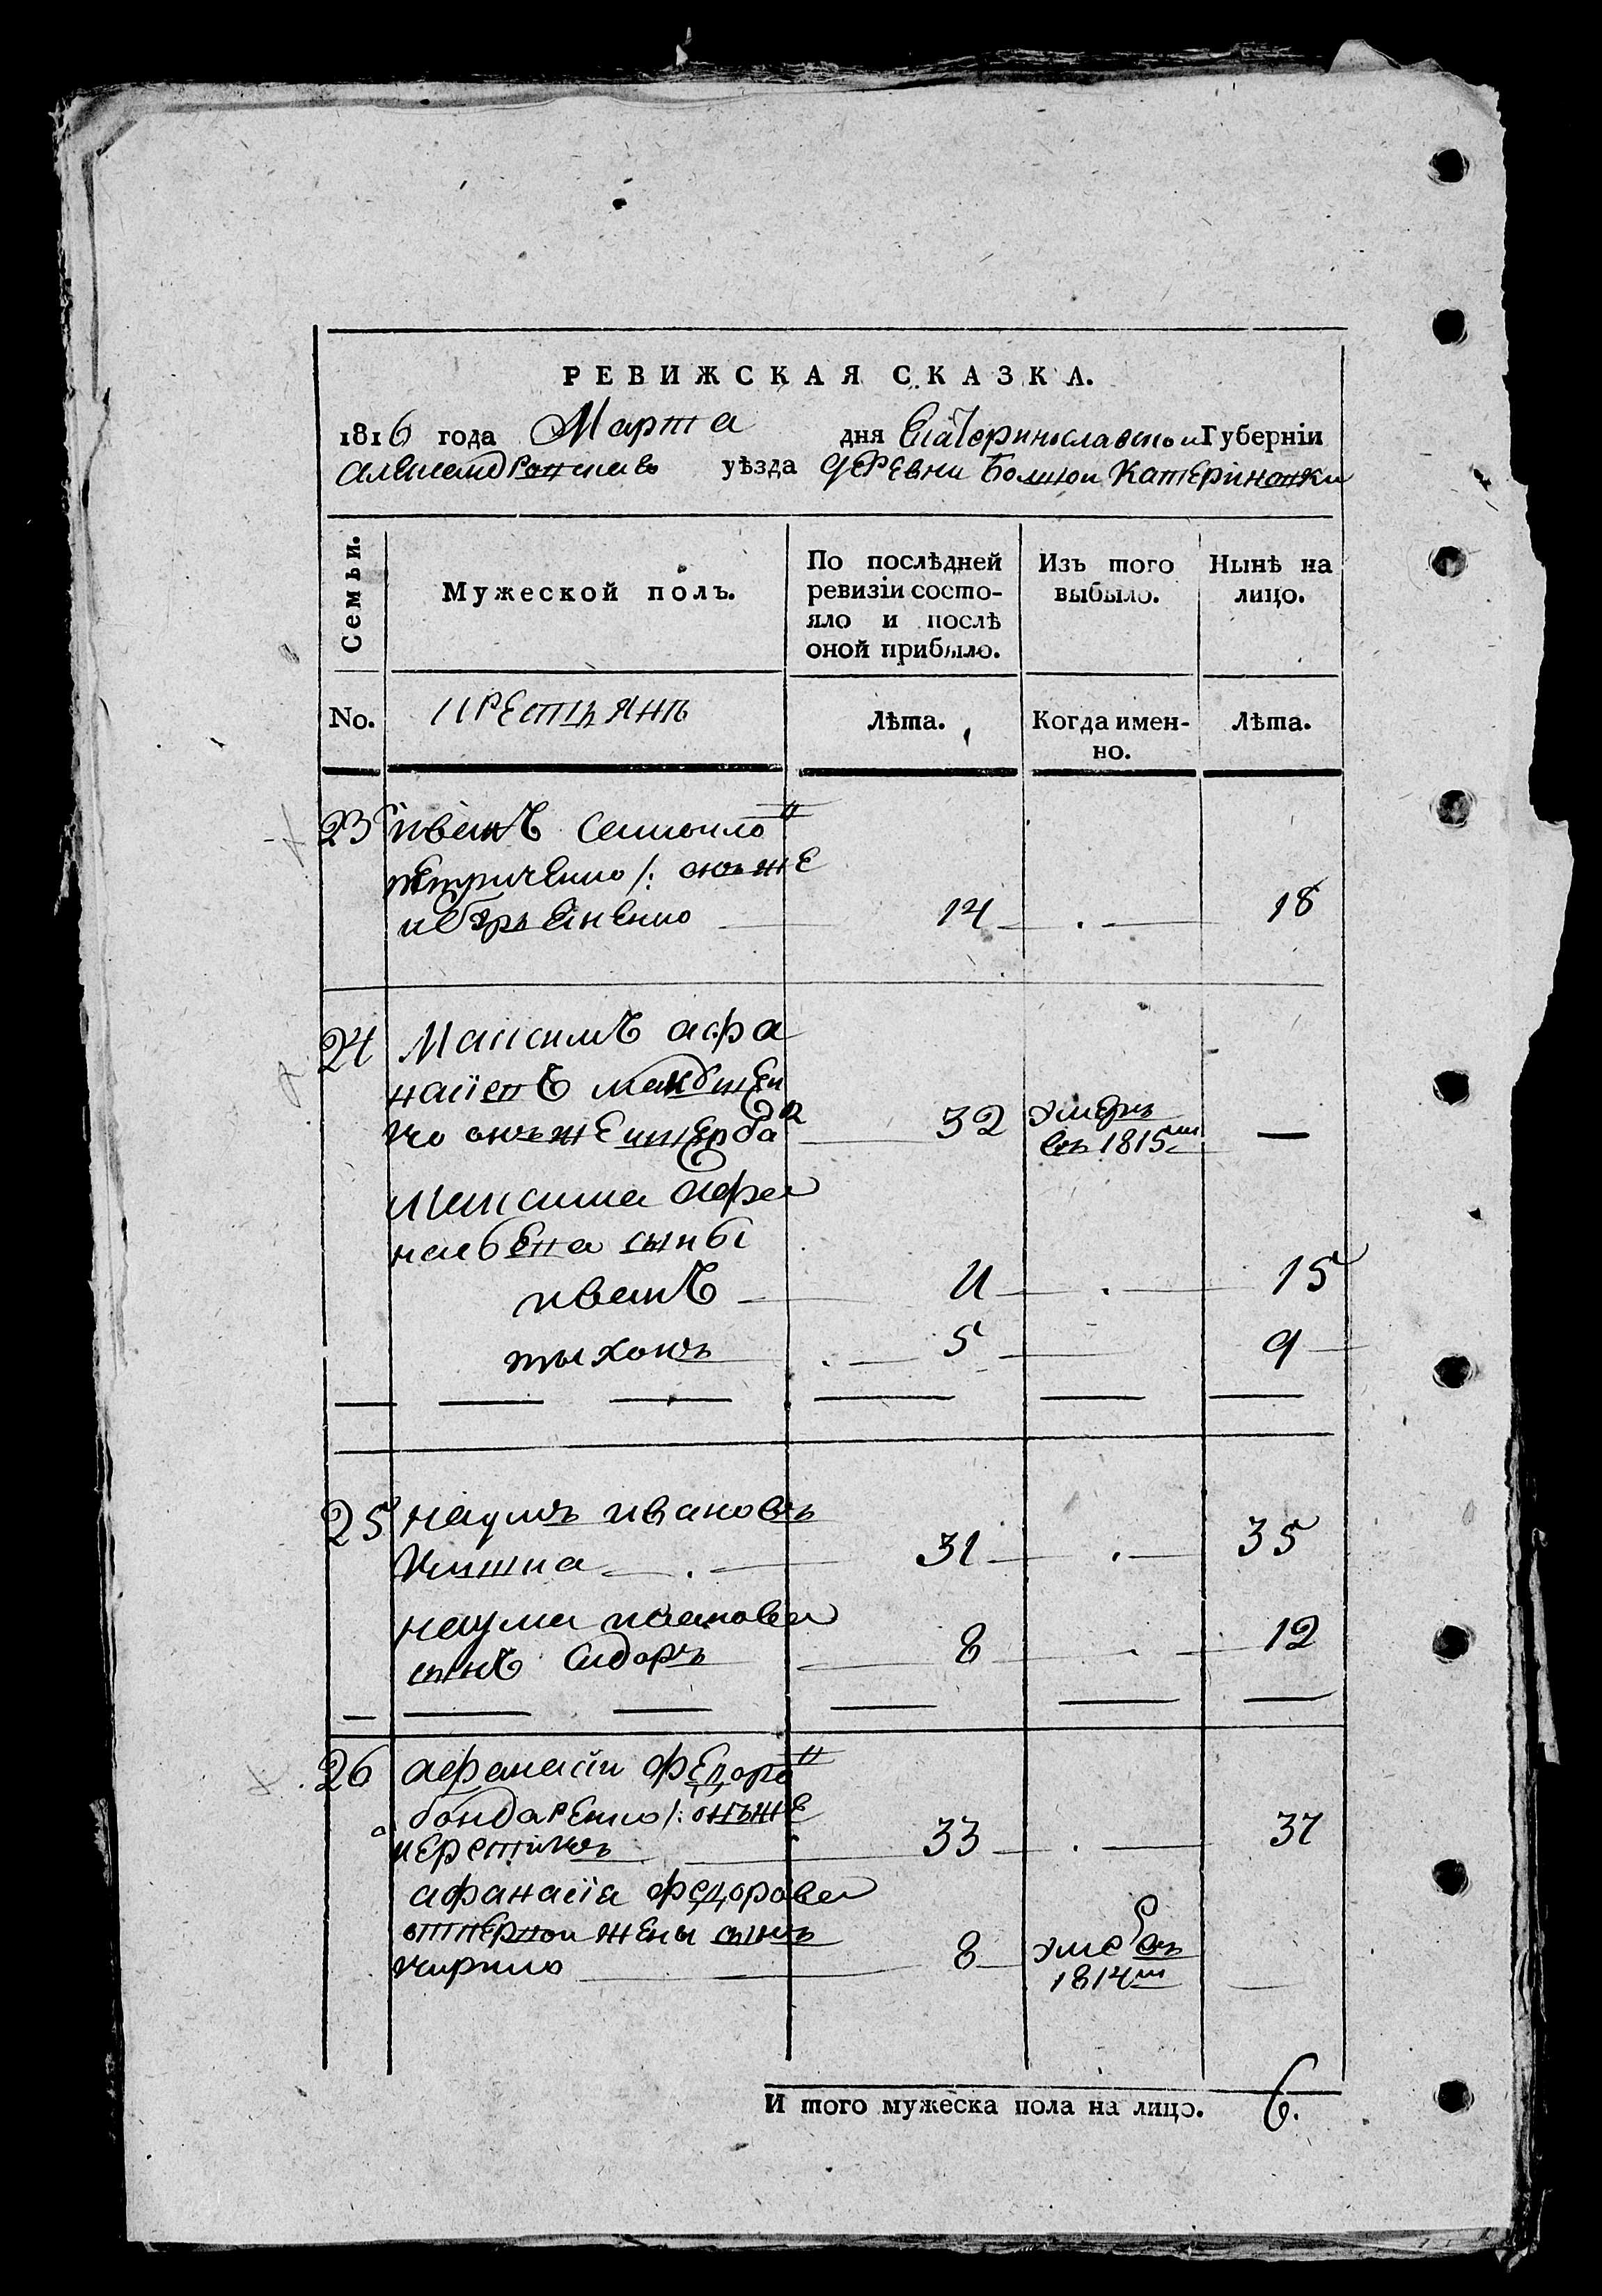 РЕВИЖСКАЯ СКАЗКА.
1816 года Марта дня Екатеринославской Губерніи
александровскаго уѣзда деревни Болшои Катериновки
Семьи.
Мужеской полъ.
По послѣдней ревизіи состояло и послѣ оной прибыло.
Изъ того выбыло.
Нынѣ на лицо.
No.
крестьянъ
Лѣта.
Когда именно.
Лѣта.
23 иванъ самоило
петриченко /: онъже
14 . 18
24 Максимъ афа
насіевъ
онъже щерба 32 умеръ
въ 1815м —
максима афа
насьева сыны
иванъ 11 . 15
тыхонъ 5 9
25 наумъ ивановъ
кишка 31 . 35
наума иванова
сынъ сидоръ 8 . 12
26 афанасіи федоро
бондаренко /: онъже
33 . 37
афанасіа федорова
отпервои жены сынъ
кирило 8 умеръ въ
1814м
И того мужеска пола на лицо. 6.